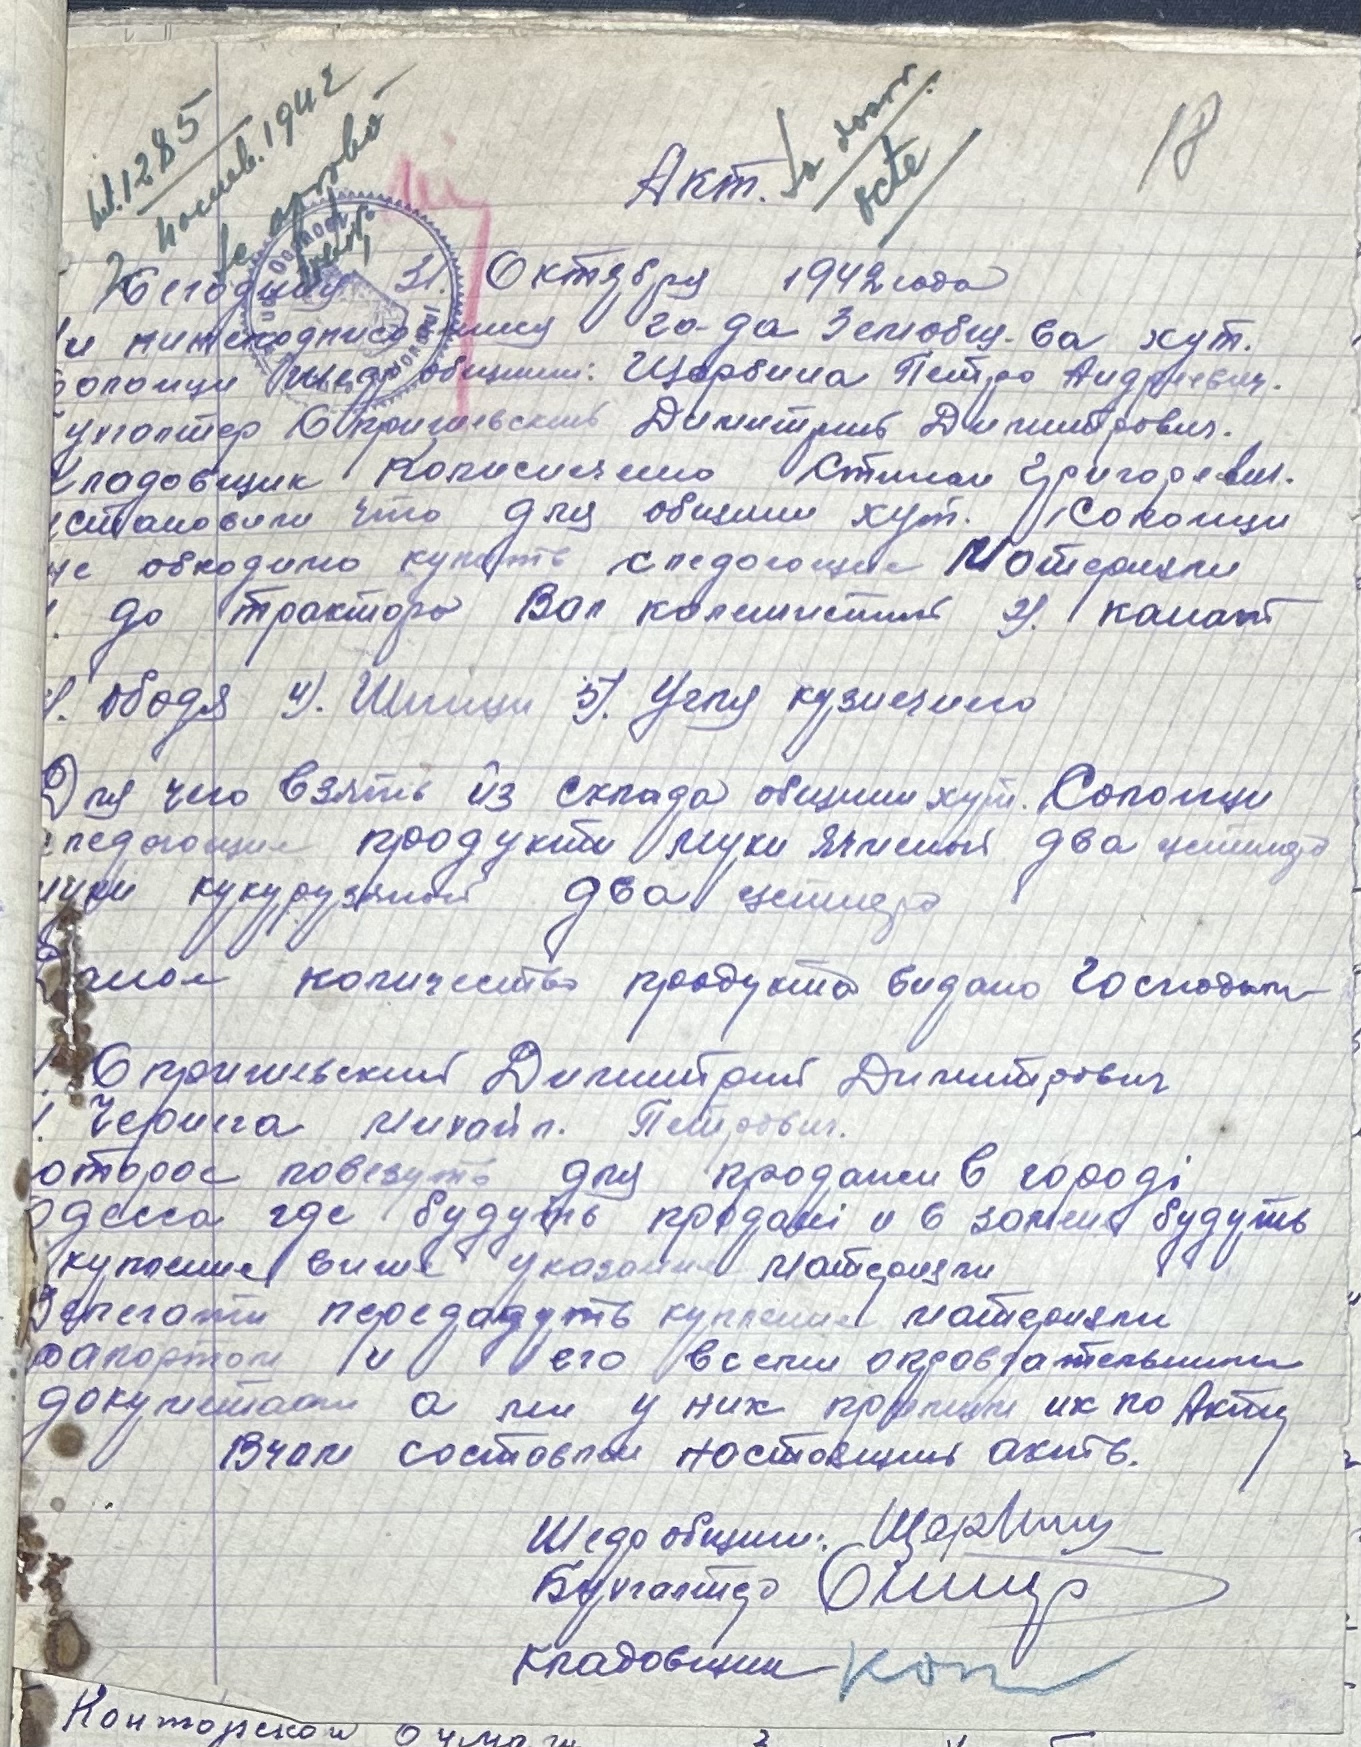 18
1285
1942
Акт.
Сегодня 31. Октября 1942 года
нижеподписавшиеся го-да Земобщ-ва хут.
Шеф общини: Щербина Петро Андреевич.
Димитрив Димитрович.
Кладовщик Степан Григоревич.
установили что для общини хут. Солонци
не обходимо купить следующие Материяли
до трактора Вал коленчетий 2). канат
ободя 4). Шпици 5). Угля кузнечного
Для чего взять из склада общини хут. Солонци
следующие продукти муки ячменой два центнера
муки кукурузяной два центнера
Даное количество продукта видано Господам
Димитрий Димитрович
Михайл. Петрович.
которое повезуть для продажи в городі
Одесса где будуть продані и в замен будуть
купление више указание материяли
передадуть купление материяли
рапортом и его всеми оправдательними
документами а ми у них примем их по Акту
В чом составлен настоящий актъ.
Шеф общини: Щербина
Бухгалтер
Кладовщик Коп
Конторской